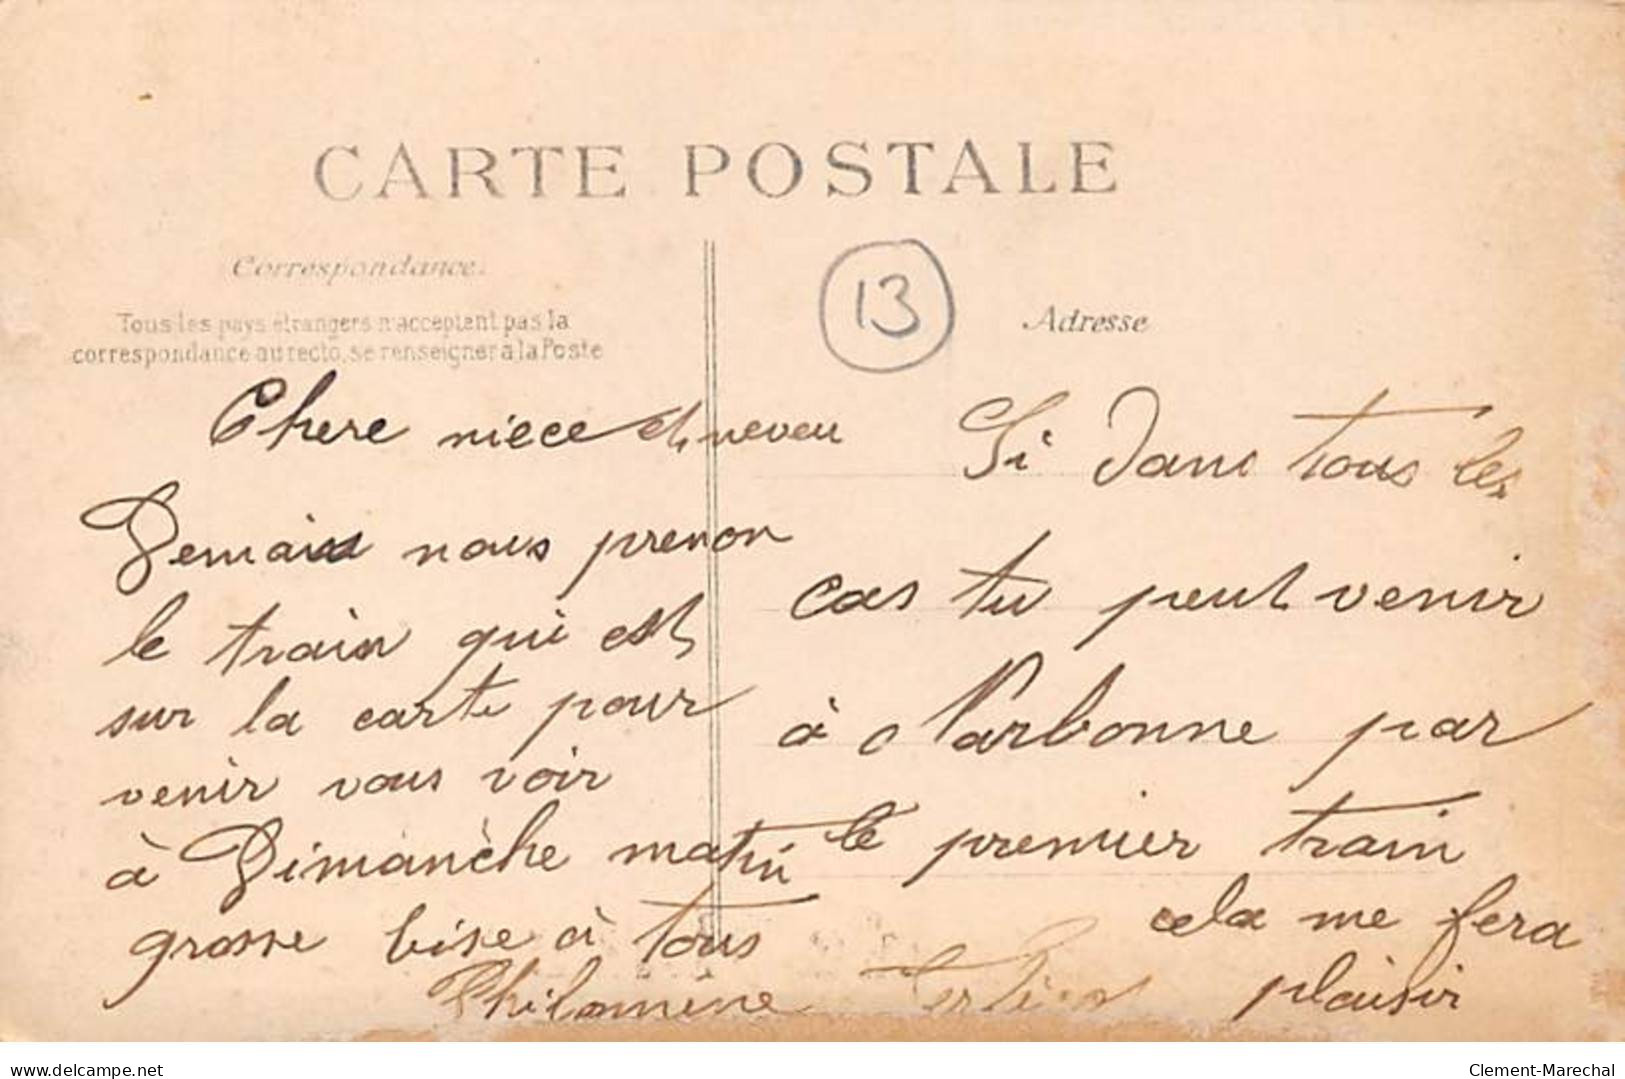 CARTE POSTALE
Correspondance.
Tous les pays étrangers n'acceptent pas la
correspondance au recto, se renseigner à la Poste
13
Adresse
Chere niece et neveu
Demain nous prenon
le train qui est
sur la carte pour
venir vous voir
à Dimanche matin
grosse bise à tous
Philomène
Si dans tous les
cas tu peut venir
à Narbonne par
le premier train
cela me fera
plaisir
www.delcampe.net
Clement-Marechal